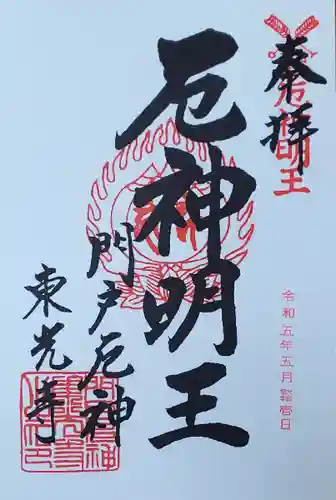 奉拝
厄神明王
令和五年五月
日
厄神明王
門戸厄神
東光寺